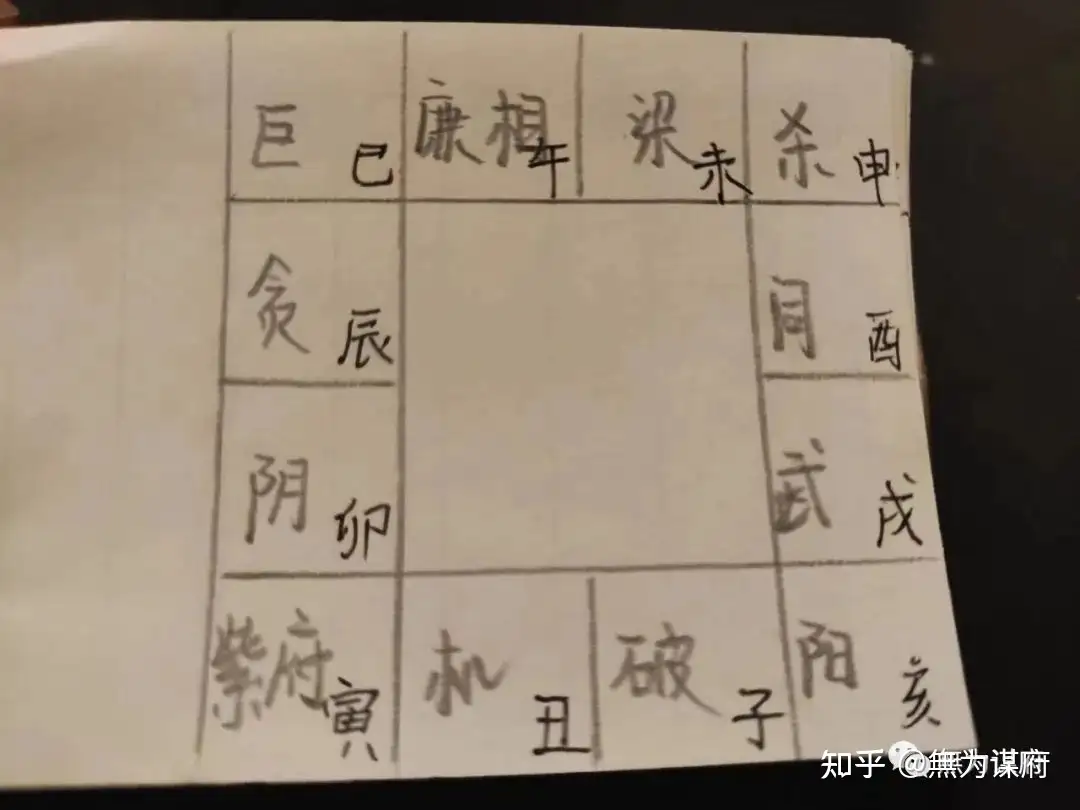 巨 巳 廉相 午 梁 未 杀 申
贪 辰 同 酉
阴 卯 武 戌
紫府 寅 机 丑 破 子 阳 亥
知乎 @無为谋府